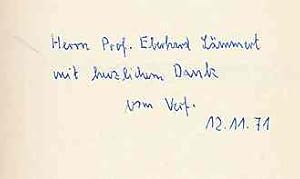 Herrn Prof. Eberhard Lämmert
mit herzlichem Dank
vom Verf.
12.11.71